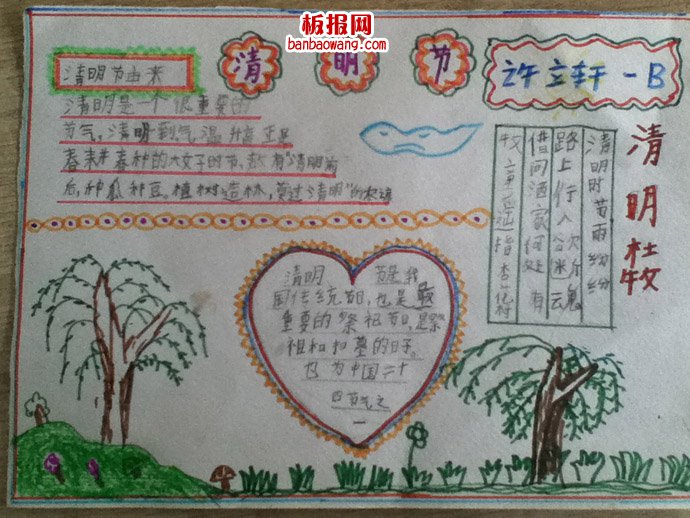 板报网
banbaowang.com
清明节
许立轩 一B
清明节由来
清明是一个很重要的
节气,清明到气温升高正是
春耕春种的大好时节,故有"清明前
后,种瓜种豆。植树造林,莫过清明"的农谚
清明 杜牧
清明时节雨纷纷
路上行人欲断魂
借问酒家何处有
牧童遥指杏花村
清明节是我
国传统节日,也是最
重要的祭祖节日,是祭
祖和扫墓的日子。
也为中国二十
四节气之
一